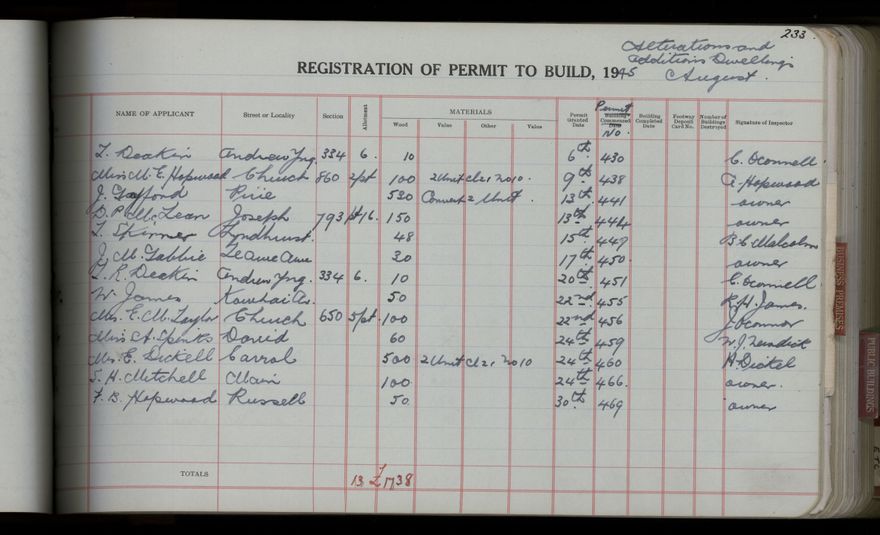 233.
Alterations and
additions Dwellings
August.
REGISTRATION OF PERMIT TO BUILD, 1945
NAME OF APPLICANT Street or Locality Section Allotment MATERIALS Wood Value Other Value Permit Granted Date Permit No. Building Commenced Date Building Completed Date Footway Deposit Card No. Number of Buildings Destroyed Signature of Inspector
T. Deakin Andrew Yng. 334 6. 10 6th 430 C. Oconnell.
Miss M. E. Hopwood Church 860 2/pt 100 2 Unit Cl 21 No 10. 9th 438 A. Hopwood
J. Gafford Pirie 530 Convert 2 Unit. 13th 441 owner
D. P. McLean Joseph 793 pt 16. 150 13th 444 owner
T. Skinner Lyndhurst. 48 15th 449 B. C. Malcolm
J. M. Gabbie Te Awe Awe 30 17th 450 owner
T. R. Deakin Andrew Yng. 334 6. 10 20th 451 C. Oconnell.
W. James Kowhai Av. 50 22nd 455 R. H. James.
Mrs. E. M. Taylor Church 650 5/pt 100 22nd 456 J. OConnor
Miss A. Spinks David 60 24th 459 W. J.
Mrs. E. Dickell Carroll 500 2 Unit Cl 21 No 10 24th 460 A. Dickel
S. H. Mitchell Main 100 24th 466. owner.
F. B. Hopwood Russell 50. 30th 469 owner
TOTALS 13 £1738
BUSINESS PREMISES
PUBLIC BUILDINGS